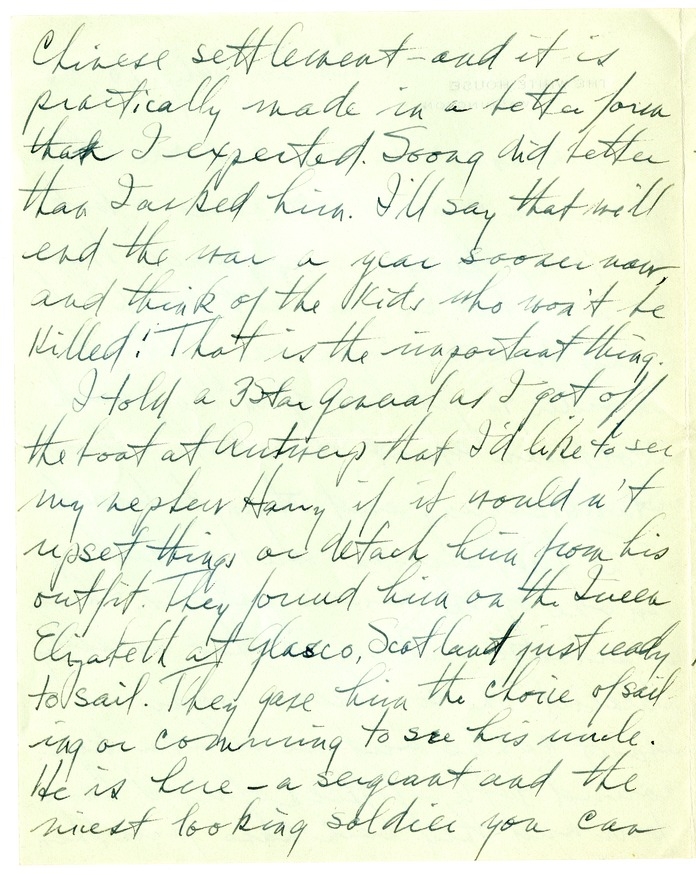 Chinese settlement - and it is
practically made in a better form
than I expected. Soong did better
than I asked him. I'll say that we'll
end the war a year sooner now,
and think of the kids who won't be
killed! That is the important thing.
I told a 3 Star General as I got off
the boat at Antwerp that I'd like to see
my nephew Harry if it wouldn't
upset things or detach him from his
outfit. They found him on the Queen
Elizabeth at Glasco, Scotland just ready
to sail. They gave him the choice of sail-
ing or comming to see his uncle.
He is here - a sergeant and the
nicest looking soldier you can